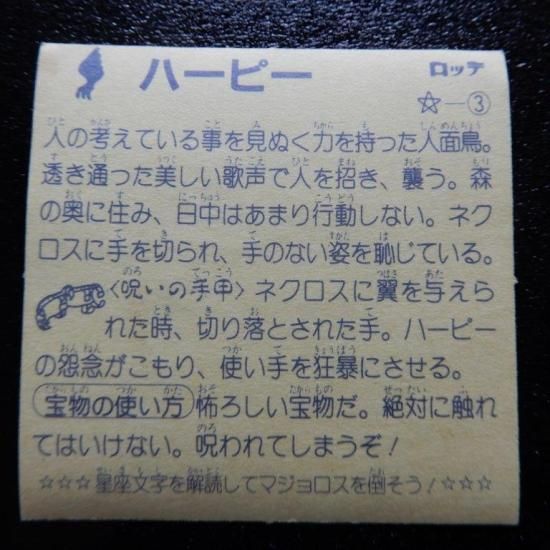 ハーピー ロッテ
☆―③
人の考えている事を見ぬく力を持った人面鳥。
透き通った美しい歌声で人を招き、襲う。森
の奥に住み、日中はあまり行動しない。ネク
ロスに手を切られ、手のない姿を恥じている。
〈呪いの手甲〉ネクロスに翼を与えら
れた時、切り落とされた手。ハーピー
の怨念がこもり、使い手を狂暴にさせる。
宝物の使い方 怖ろしい宝物だ。絶対に触れ
てはいけない。呪われてしまうぞ！
☆☆☆星座文字を解読してマジョロスを倒そう！☆☆☆